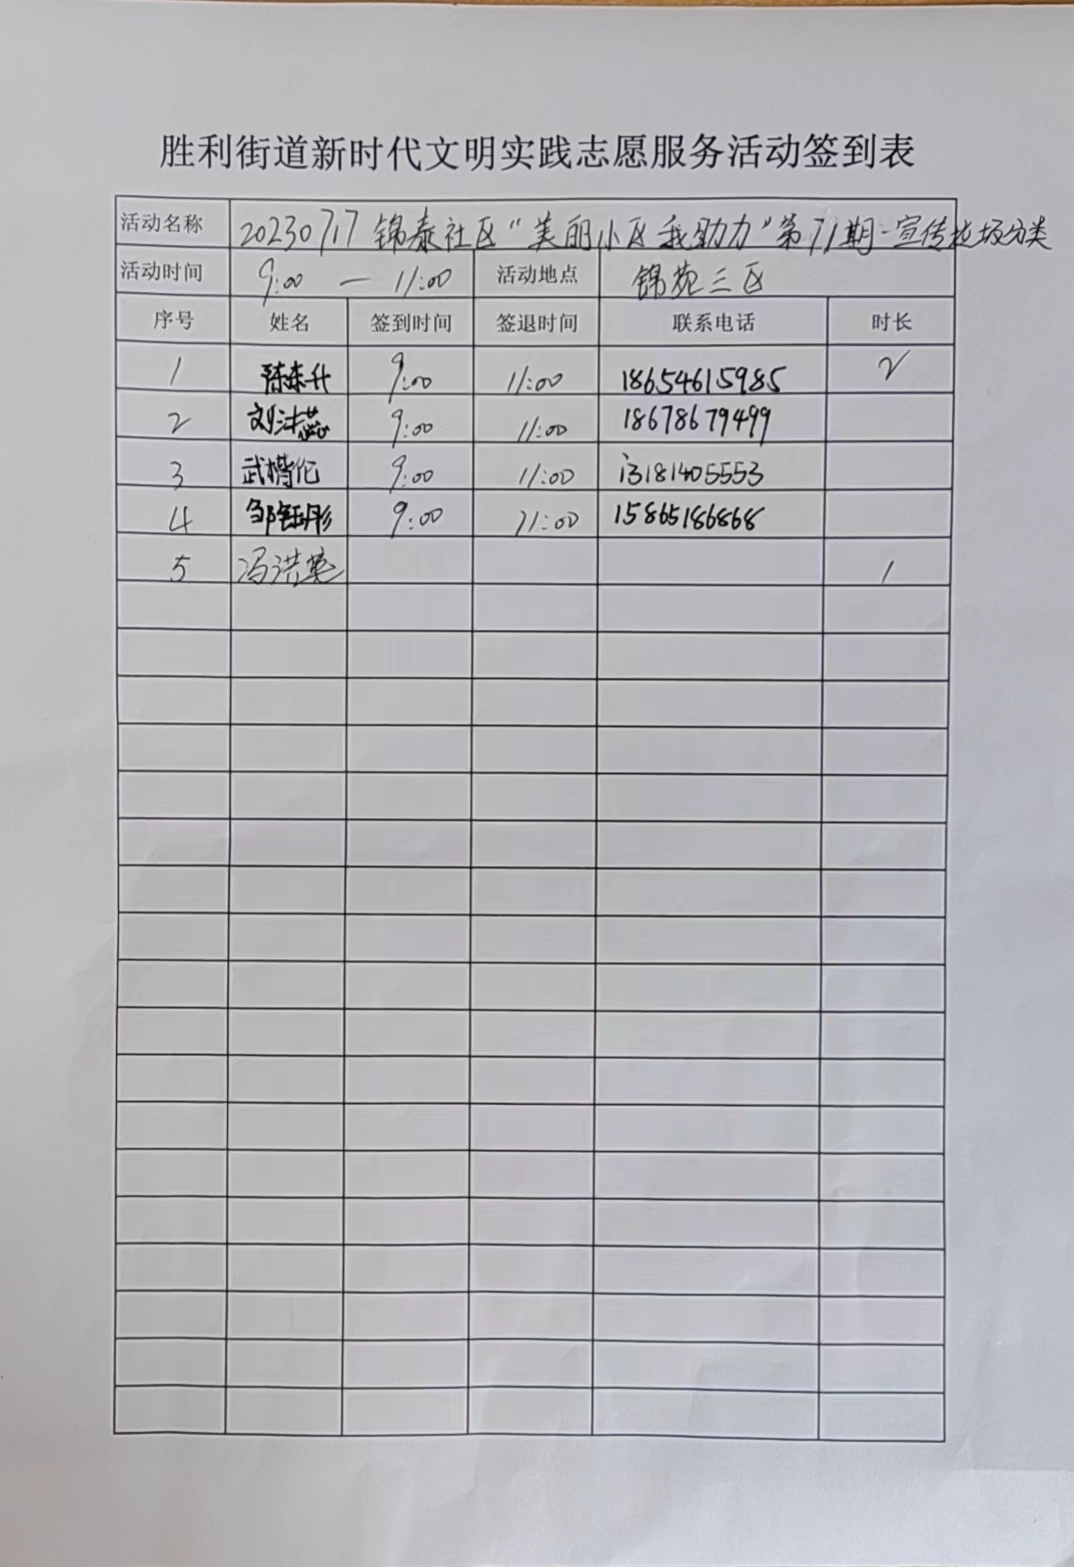 胜利街道新时代文明实践志愿服务活动签到表
活动名称 20230717锦泰社区"美丽小区我助力"第71期-宣传垃圾分类
活动时间 9:00 — 11:00 活动地点 锦苑三区
序号 姓名 签到时间 签退时间 联系电话 时长
1 陈东升 9:00 11:00 18654615985 2
2 刘洪蕊 9:00 11:00 18678679499
3 武楷伦 9:00 11:00 13181405553
4 邹钰彤 9:00 11:00 15865186868
5 冯洪英 1